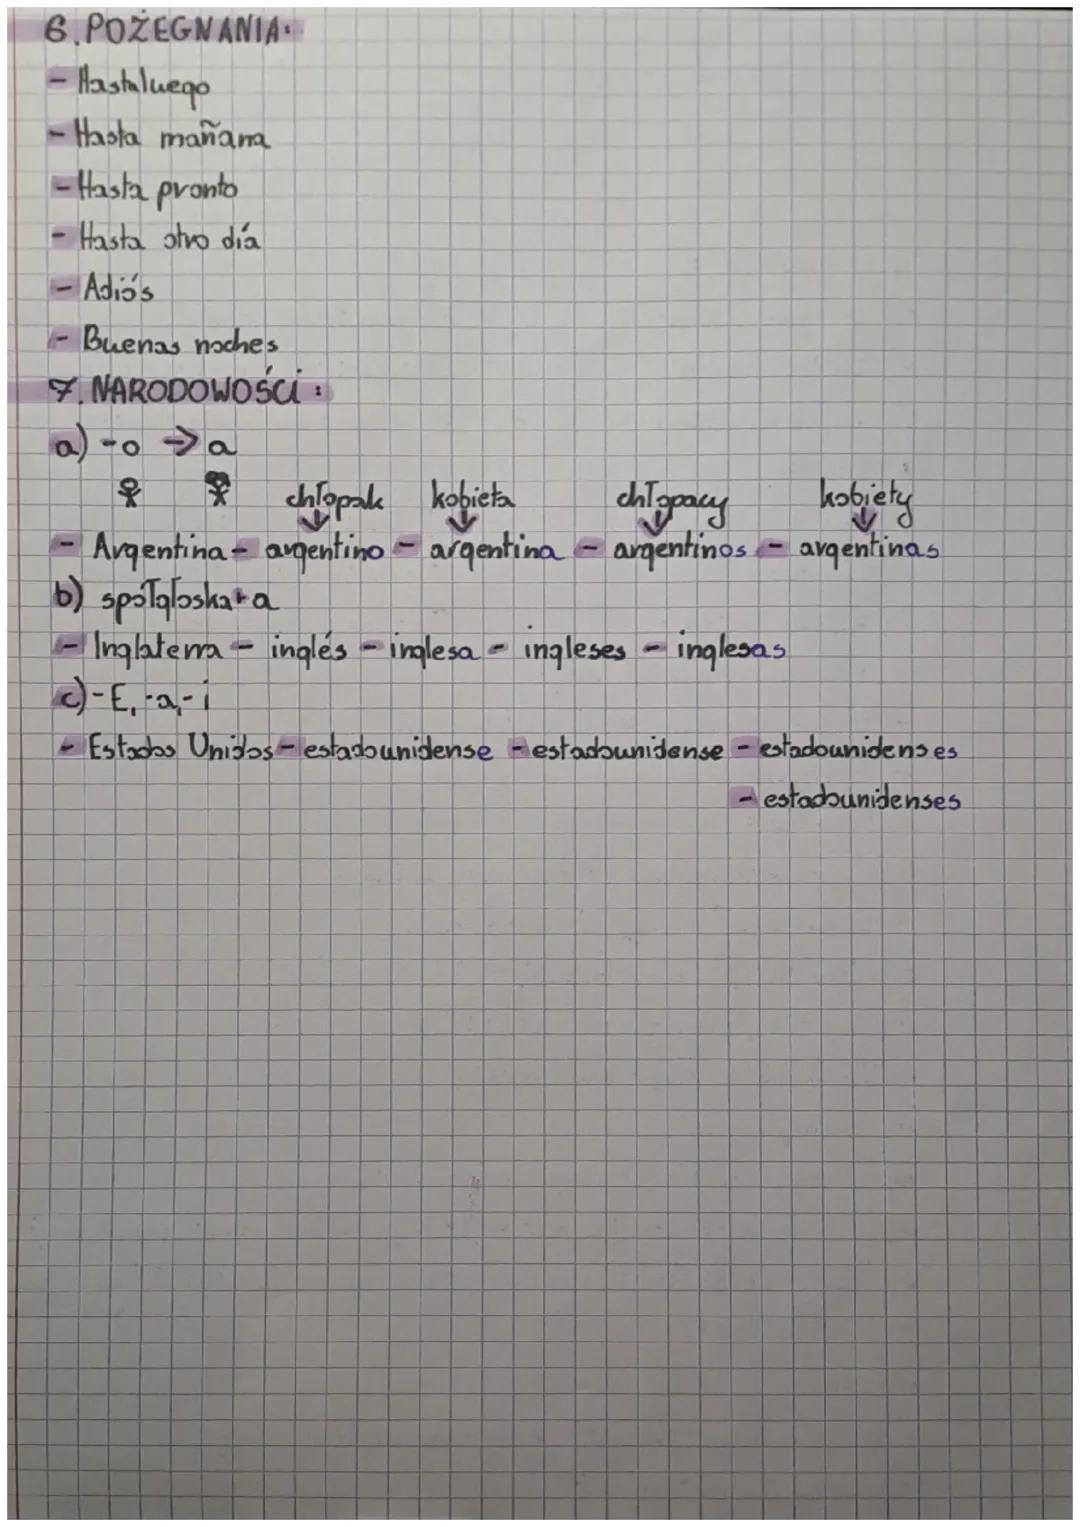 6. POŻEGNANIA:
- Hasta luego
- Hasta mañana
- Hasta pronto
- Hasta otro día
- Adiós
- Buenas noches
7. NARODOWOŚCI:
a) -o → a
chłopak kobieta chłopacy kobiety
- Argentina - argentino - argentina - argentinos - argentinas
b) spółgłoska + a
- Inglaterra - inglés - inglesa - ingleses - inglesas
c) -E, -a, -i
- Estados Unidos - estadounidense - estadounidense - estadounidenses
- estadounidenses